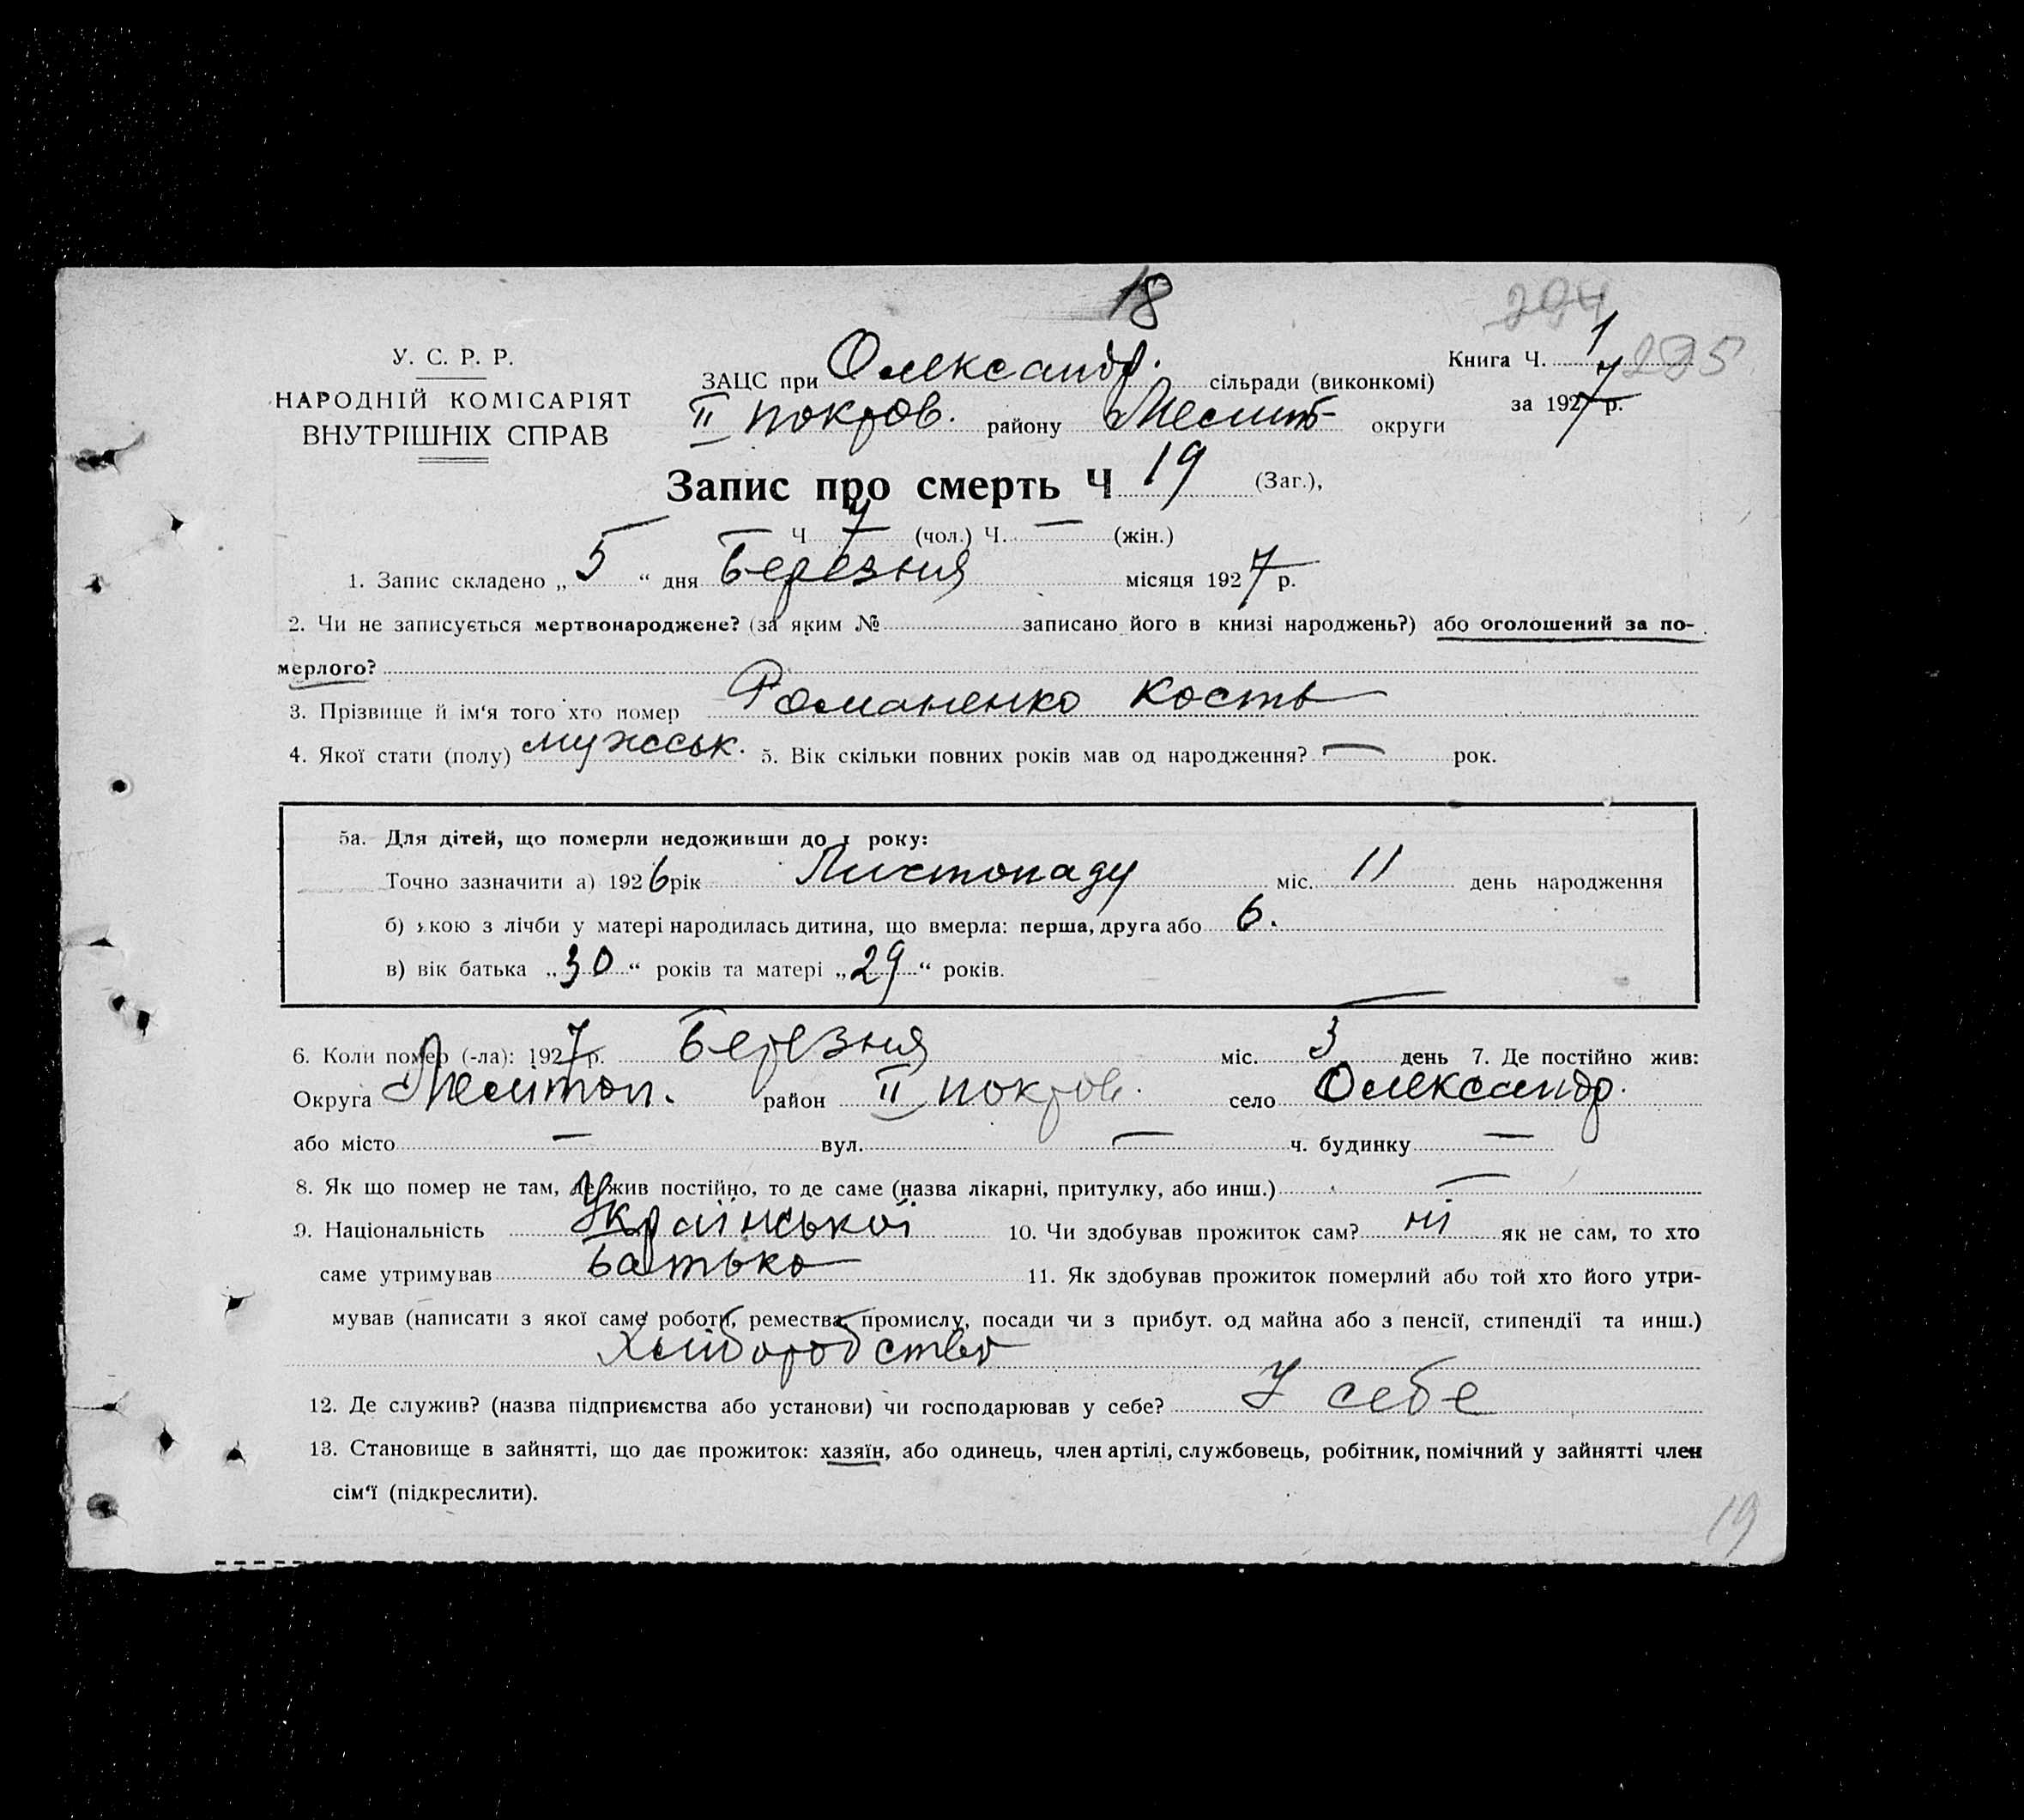 18
204
У. С. Р. Р.
НАРОДНІЙ КОМІСАРІЯТ
ВНУТРІШНІХ СПРАВ
ЗАЦС при Олександр. сільради (виконкомі)
II покров. району Меліт- округи
Книга Ч. 1 235
за 1927 р.
Запис про смерть Ч 19 (Заг.),
Ч 7 (чол.) Ч. — (жін.)
1. Запис складено „ 5 “ дня Березня місяця 1927 р.
2. Чи не записується мертвонароджене? (за яким № записано його в книзі народжень?) або оголошений за по-
мерлого?
3. Прізвище й ім‘я того хто помер Романенко Кость
4. Якої стати (полу) мужеськ. 5. Вік скільки повних років мав од народження? — рок.
5а. Для дітей, що померли недоживши до 1 року:
Точно зазначити а) 1926 рік Листопаду міс. 11 день народження
б) якою з лічби у матері народилась дитина, що вмерла: перша, друга або 6.
в) вік батька „30“ років та матері „29“ років.
6. Коли помер (-ла): 1927 р. Березня міс. 5 день 7. Де постійно жив:
Округа Мелітоп. район II покров. село Олександр.
або місто — вул. — ч. будинку —
8. Як що помер не там, де жив постійно, то де саме (назва лікарні, притулку, або инш.) —
9. Національність Української 10. Чи здобував прожиток сам? ні як не сам, то хто
саме утримував батько 11. Як здобував прожиток померлий або той хто його утри-
мував (написати з якої саме роботи, ремества, промислу, посади чи з прибут. од майна або з пенсії, стипендії та инш.)
Хліборобство
12. Де служив? (назва підприємства або установи) чи господарював у себе? У себе
13. Становище в зайнятті, що дає прожиток: хазяїн, або одинець, член артілі, службовець, робітник, помічний у зайнятті член
сім‘ї (підкреслити).
19